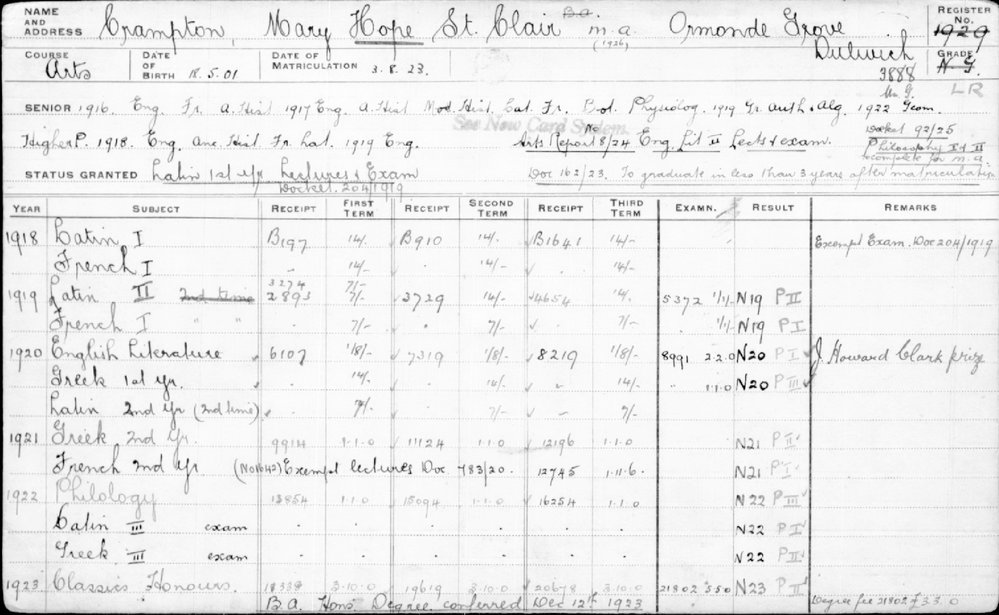 NAME AND ADDRESS Crampton, Mary Hope St. Clair B.a. m.a. (1926) Ormonde Grove Dulwich REGISTER No. 1929
COURSE Arts DATE OF BIRTH 18.5.01 DATE OF MATRICULATION 3.8.23. 3888 GRADE N.G. LR
SENIOR 1916. Eng. Fr. A. Hist 1917 Eng. A. Hist Mod. Hist. Lat. Fr. Bot. Physiolog. 1919 Gr. Arith & Alg. 1922 Geom.
See New Card System.
Higher P. 1918. Eng. Anc. Hist. Fr. Lat. 1919 Eng. Arts Report No 8/24 Eng. Lit II Lects & exam. Docket 92/25 Philosophy I & II complete for m.a.
STATUS GRANTED Latin 1st yr Lectures & Exam Docket. 204/1919 Doc 162/23. To graduate in less than 3 years after matriculation
YEAR SUBJECT RECEIPT FIRST TERM RECEIPT SECOND TERM RECEIPT THIRD TERM EXAMN. RESULT REMARKS
1918 Latin I B197 14/- B910 14/- B1641 14/- Exempt Exam. Doc 204/1919
French I 14/- 14/- 14/-
3274 7/-
1919 Latin II 2nd time 2893 7/- 3729 14/- 4654 14/- 5372 1/1/- N19 P II
French I " " 7/- 7/- 7/- 1/1/- N19 P I
1920 English Literature 6107 1/8/- 7319 1/8/- 8219 1/8/- 8991 2.2.0 N20 P I J. Howard Clark prize
Greek 1st yr. 14/- 14/- 14/- " 1.1.0 N20 P III
Latin 2nd yr (2nd time) 7/- 7/- 7/-
1921 Greek 2nd Yr. 9914 1.1.0 11124 1.1.0 12196 1.1.0 N21 P II
French 2nd yr (No 1642) Exempt lectures Doc. 783/20. 12745 1.11.6. N21 P I
1922 Philology 13854 1.1.0 15094 1.1.0 16254 1.1.0 N22 P III
Latin III exam N22 P I
Greek III exam N22 P II
1923 Classics Honours. 18338 3.10.0 19619 3.10.0 20678 3.10.0 21802 5.5.0 N23 P II
B.A. Hons. Degree conferred Dec 12th 1923 Degree fee 21802 £3.3.0